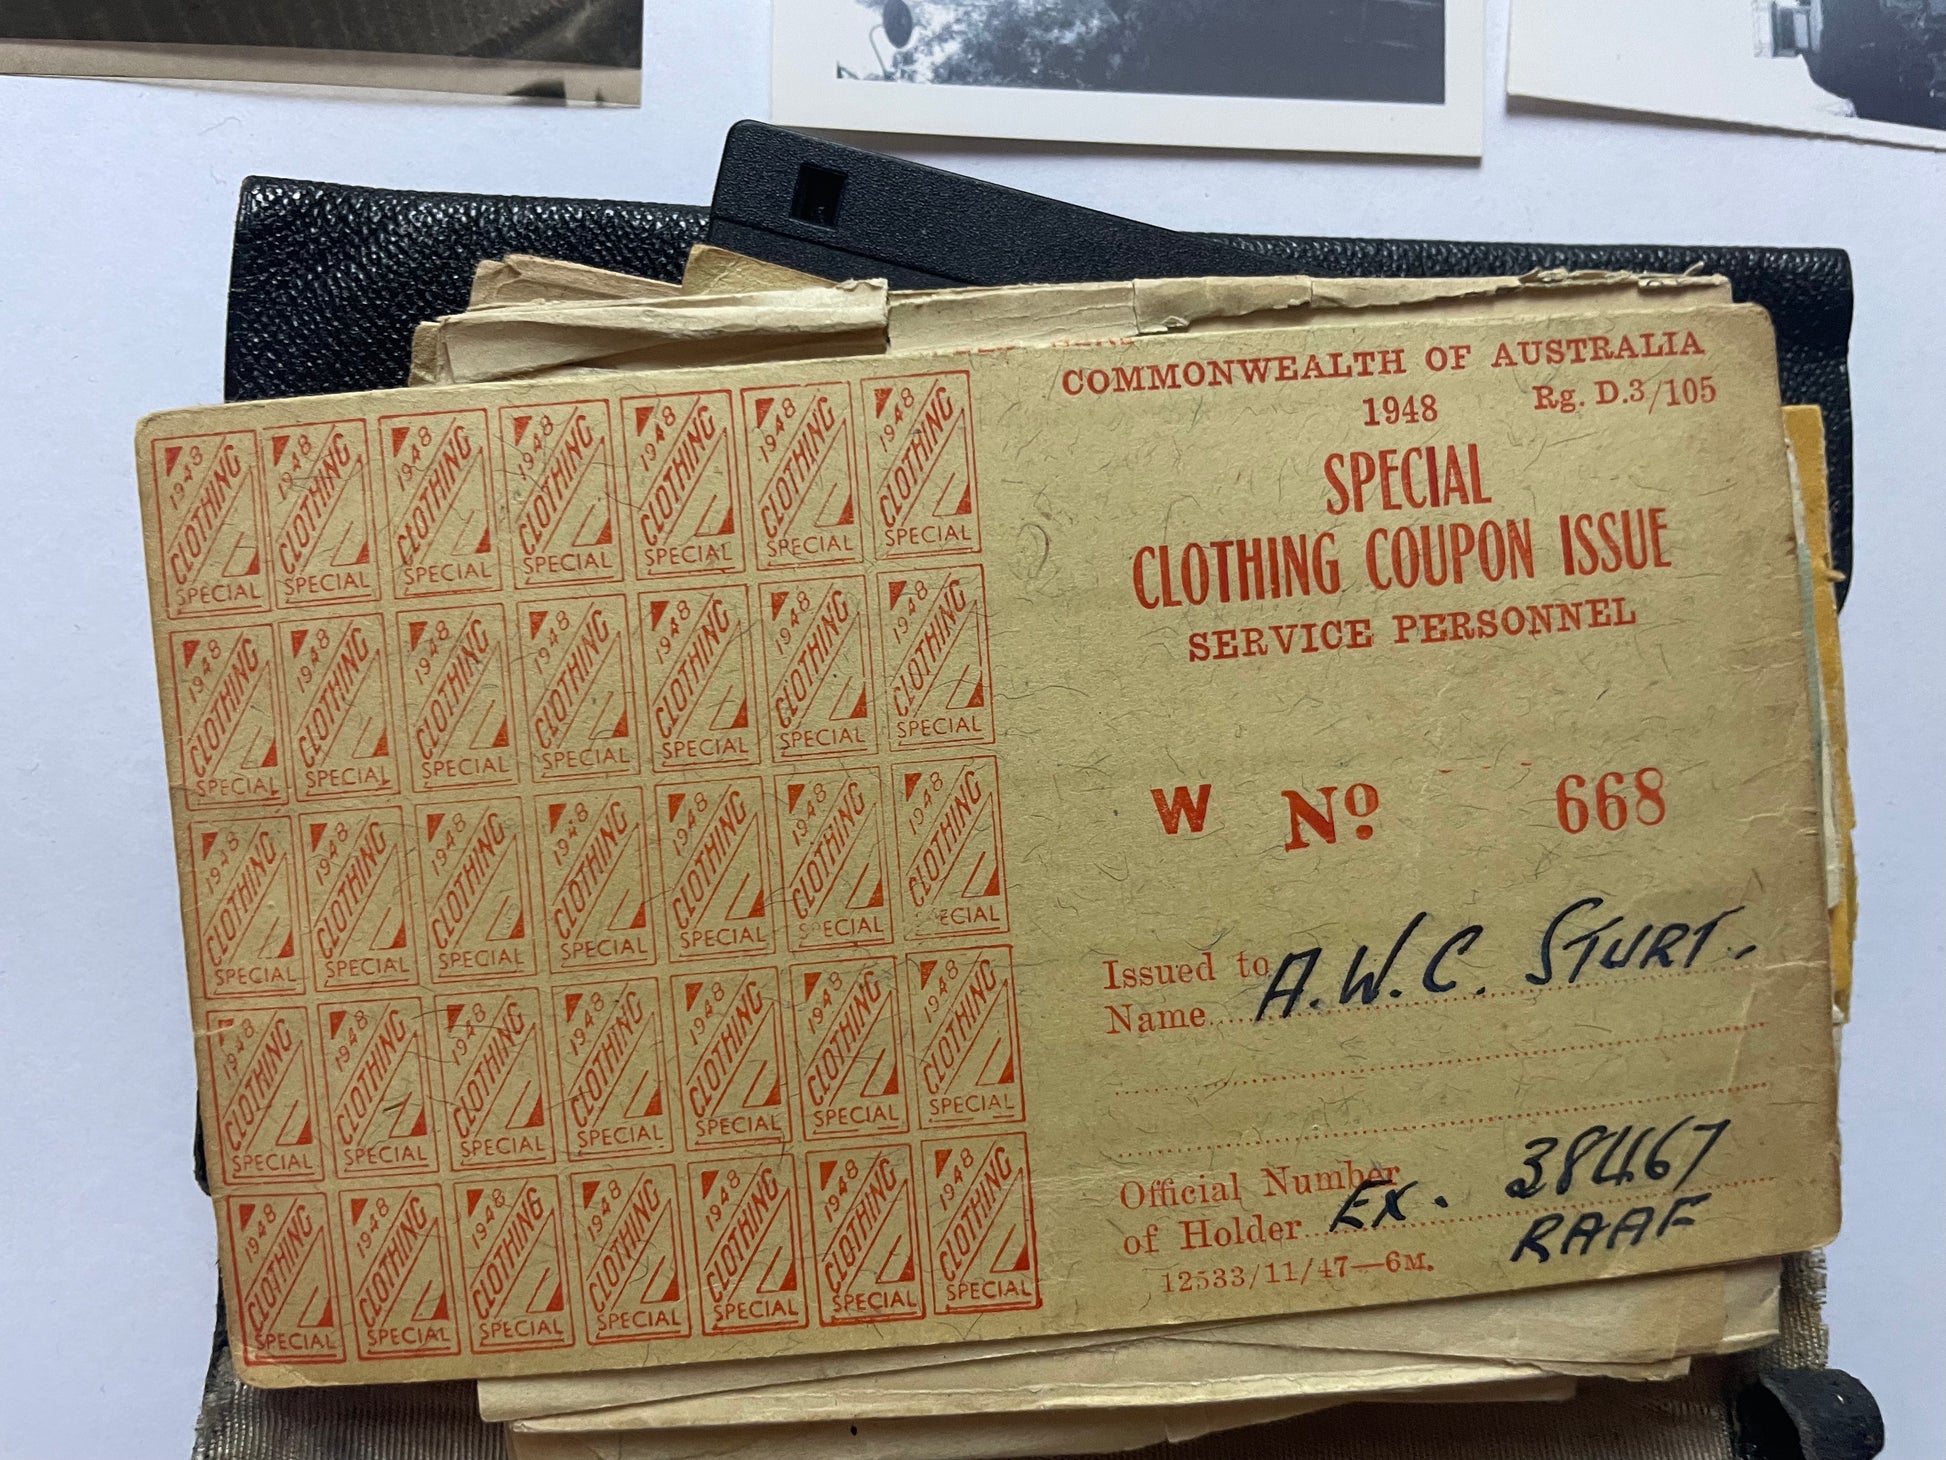 1948 1948 1948 1948 1948 1948 1948
CLOTHING CLOTHING CLOTHING CLOTHING CLOTHING CLOTHING CLOTHING
SPECIAL SPECIAL SPECIAL SPECIAL SPECIAL SPECIAL SPECIAL
1948 1948 1948 1948 1948 1948 1948
CLOTHING CLOTHING CLOTHING CLOTHING CLOTHING CLOTHING CLOTHING
SPECIAL SPECIAL SPECIAL SPECIAL SPECIAL SPECIAL SPECIAL
1948 1948 1948 1948 1948 1948 1948
CLOTHING CLOTHING CLOTHING CLOTHING CLOTHING CLOTHING CLOTHING
SPECIAL SPECIAL SPECIAL SPECIAL SPECIAL SPECIAL SPECIAL
1948 1948 1948 1948 1948 1948 1948
CLOTHING CLOTHING CLOTHING CLOTHING CLOTHING CLOTHING CLOTHING
SPECIAL SPECIAL SPECIAL SPECIAL SPECIAL SPECIAL SPECIAL
1948 1948 1948 1948 1948 1948 1948
CLOTHING CLOTHING CLOTHING CLOTHING CLOTHING CLOTHING CLOTHING
SPECIAL SPECIAL SPECIAL SPECIAL SPECIAL SPECIAL SPECIAL
COMMONWEALTH OF AUSTRALIA
1948 Rg. D.3/105
SPECIAL
CLOTHING COUPON ISSUE
SERVICE PERSONNEL
W Nº 668
Issued to
Name A.W.C. STURT.
Official Number
of Holder EX. 38467
RAAF
12533/11/47—6M.